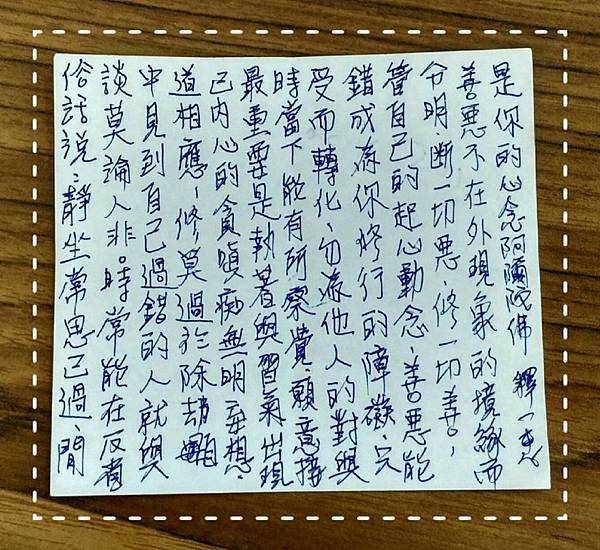 俗話說:靜坐常思己過、閒
談莫論人非。時常能在反省
中見到自己過錯的人就與
道相應,修莫過於除
己內心的貪嗔痴無明妄想、
最重要是執著與習氣出現
時當下能有所察覺,願意接
受而轉化,勿為他人的對與
錯成為你修行的障礙,只
管自己的起心動念,善惡能
分明,斷一切惡,修一切善,
善惡不在外現象的境緣而
是你的心念阿彌陀佛 釋一